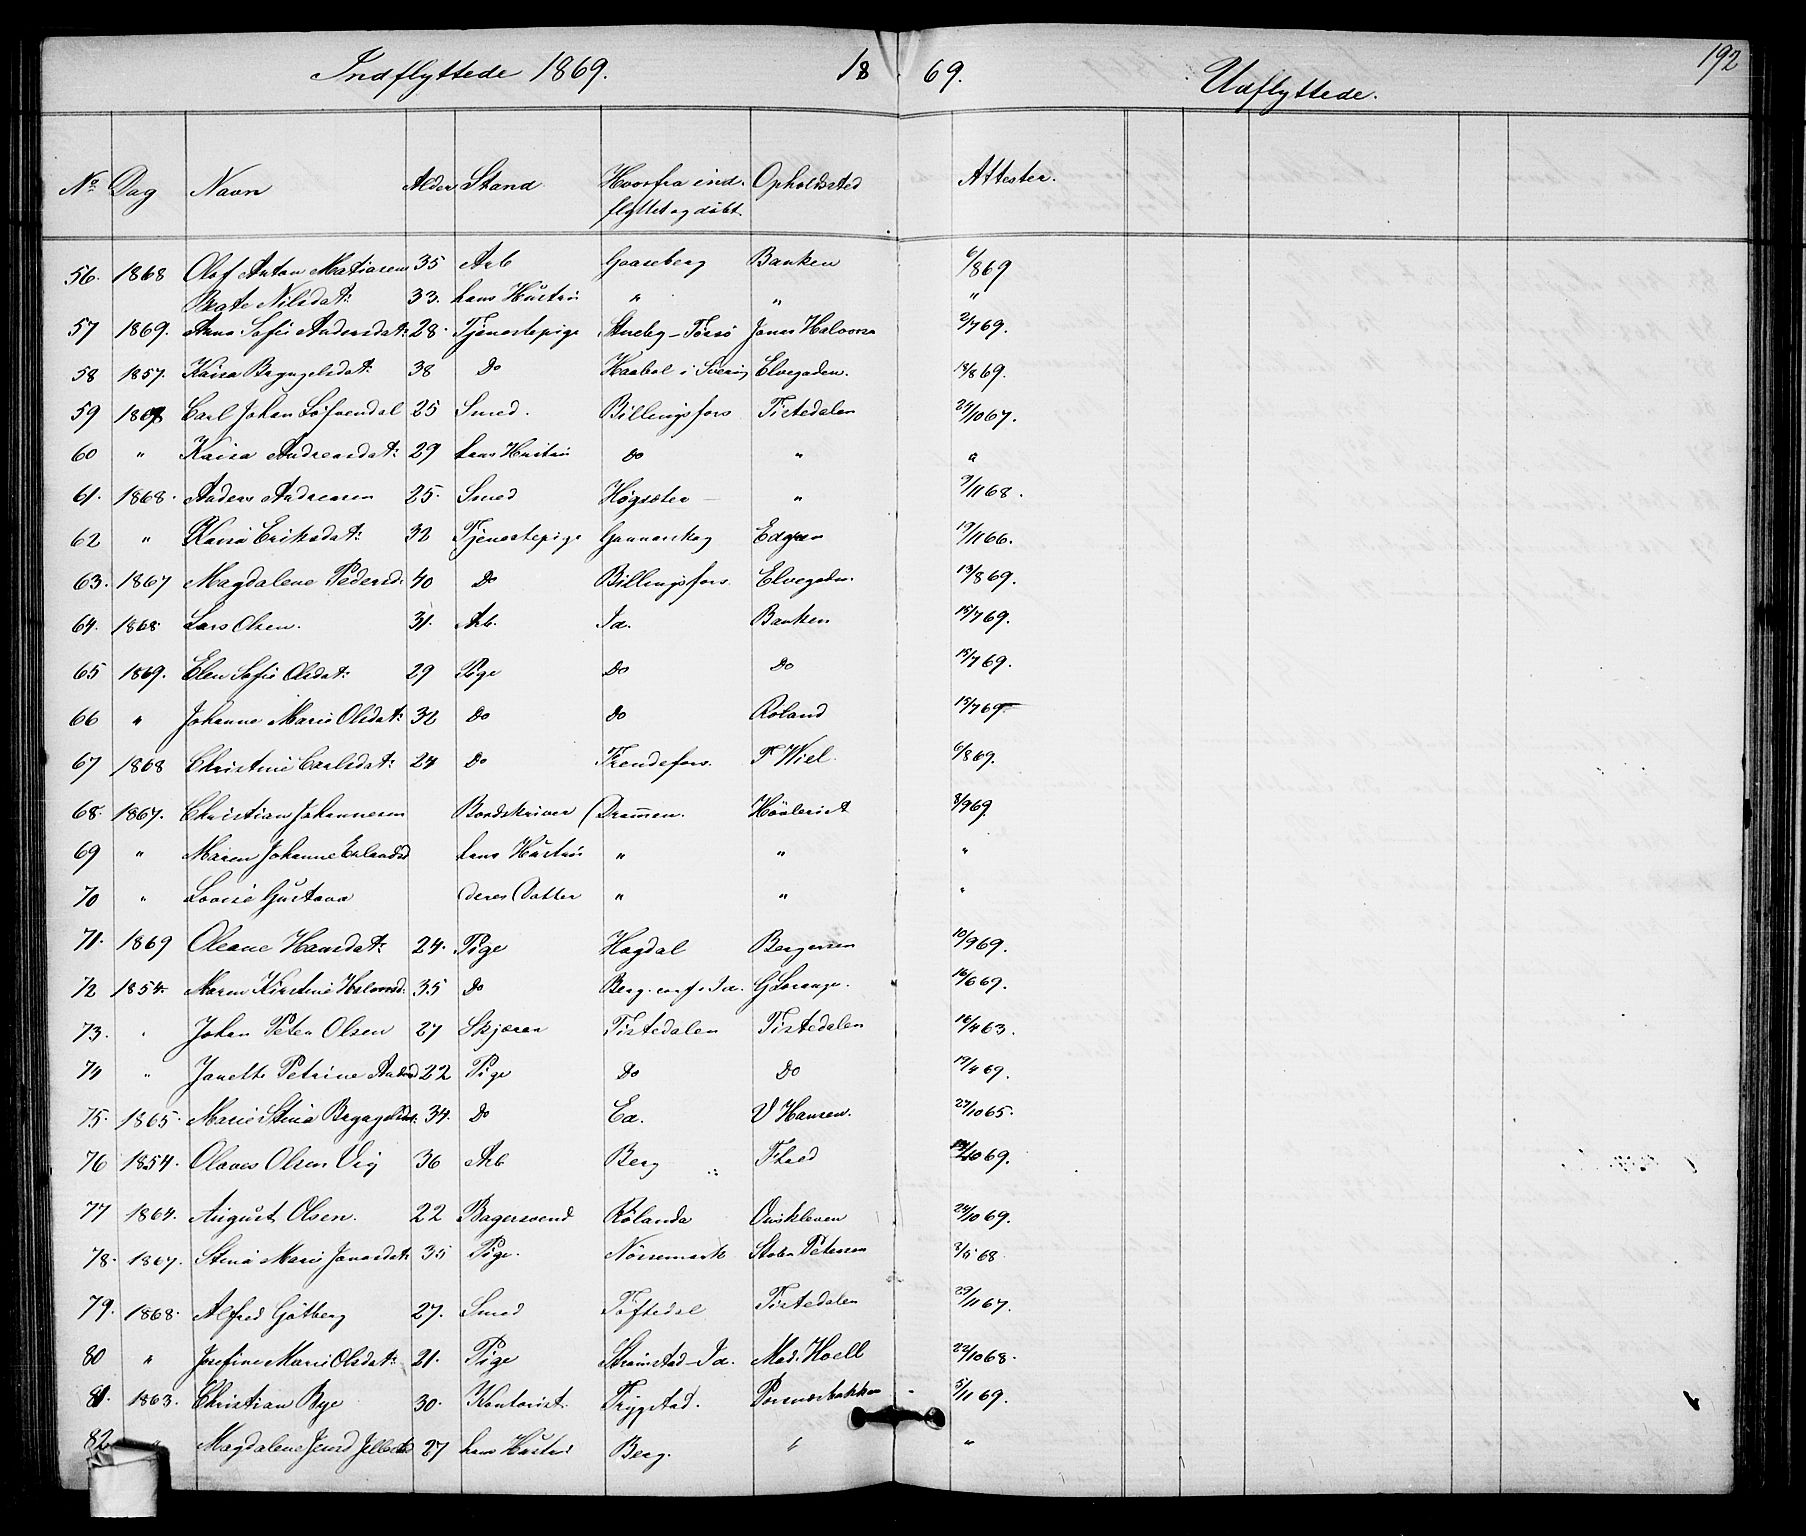 Indflyttede 1869. 18 69. Udflyttede. 192
No Dag Navn Alder Stand Hvorfra ind- Opholdssted Attester.
flyttet og døbt.
56. 1868 Olof Anton Matiasen 35 Arb Gaaseberg Banken 6/869
Beate Nilsdat: 33. hans Hustru " " "
57 1869. Anna Sofie Andersdat: 28. Tjenestepige Steneby - Tørsö Jonas Halvorsen 2/769.
58 1857. Kaisa Bryngelsdat: 38 Do Haabol i Sverig Elvegaden. 18/869.
59 1867 Carl Johan Löfvendal 25 Smed. Billingsfors Tistedalen 24/1067.
60 " Kaisa Andreasdat: 29 hans Hustru Do " "
61. 1868. Anders Andreasen 25. Smed Høgsæter " 9/1168.
62 " Kaisa Eriksdat: 32 Tjenestepige Gunnarskog 19/1166.
63. 1867 Magdalene Pedersd. 40 Do Billingsfors. Elvegaden. 13/869.
64. 1868 Lars Olsen. 31. Arb. Id. Banken 15/769.
65 1869. Elen Sofie Olsdat: 29 Pige Do Do 15/769.
66 " Johanne Marie Olsdat: 32 Do Do Röland 15/769.
67 1868 Christine Carlsdat: 24 Do T Wiel. 6/869.
68. 1867. Christian Johannesen Bordskriver Drammen. 8/969.
69 " Maren Johanne Erlandsd hans Hustru " " "
70 " Lovise Gustava deres Datter " " "
71. 1869 Oleane Hansdat: 24. Pige Hogdal Bergersen 10/969.
72 1854. Maren Kirstine Halvorsd. 35 Do Berg. conf. i Id. G Lorange. 16/669.
73. " Johan Peter Olsen 27 Skjærer Tistedalen Tistedalen 16/463.
74 " Janette Petrine Andersd 22 Pige Do Do 19/469.
75. 1865. Marie Stina Bryngelsdat. 34. Do Ed. V Hansen. 27/1065.
76 1854. Olaves Olsen Vig 36 Arb Berg Fhald /1069.
77 1864. August Olsen. 22 Bagersvend Rölanda Ouskleven 23/1069.
78. 1867. Stina Marie Jonasdat: 35 Pige. Nössemark Petersen 2/568
79. 1868. Alfred Götberg 27. Smed Töftedal Tistedalen 29/1167.
80 " Josefine Marie Olsdat: 21. Pige Strömstad - Id. Mad. Hoell 22/1068.
81. 1863. Christian Bye 30. Kontorist. Trygstad. Porsnæsbakken 5/1169.
82 " Magdalene Jensd 27 hans Hustru Berg. " "